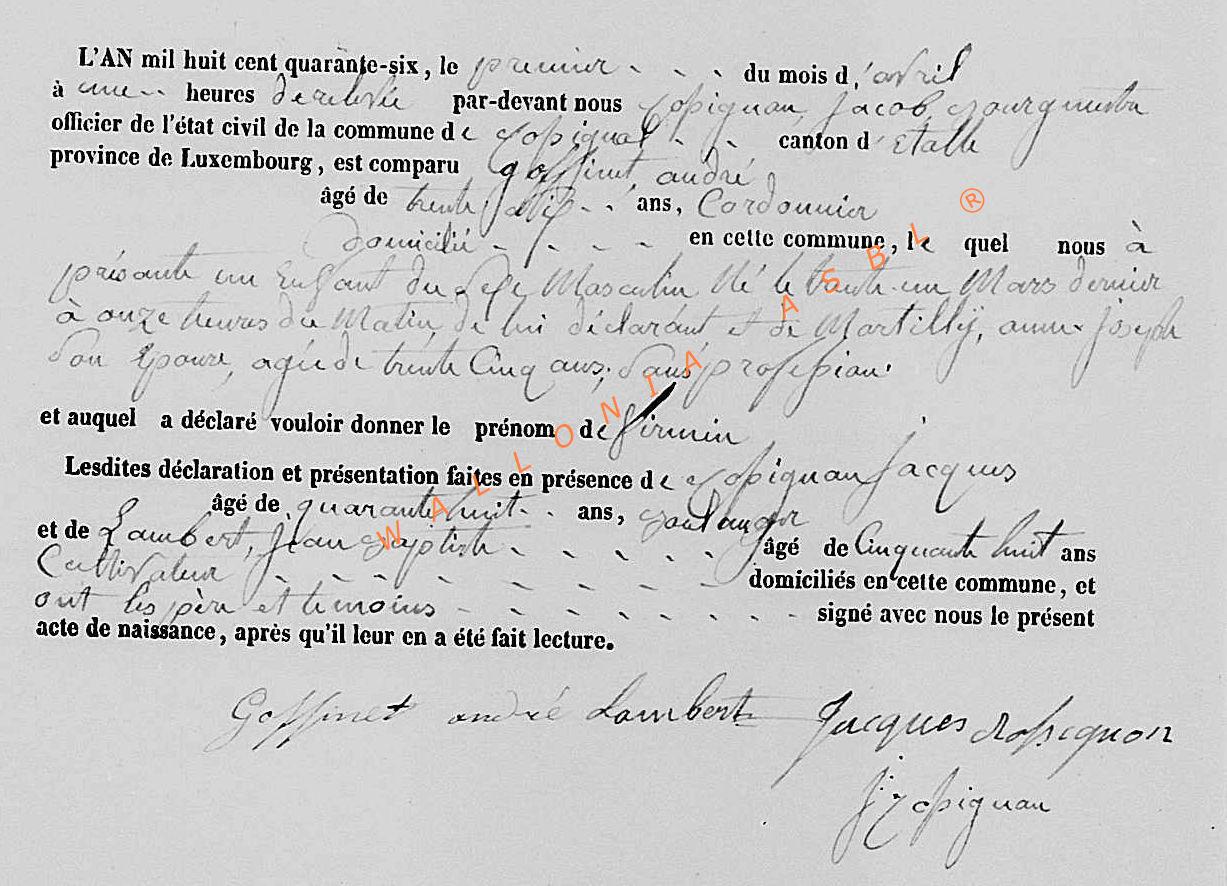 L'AN mil huit cent quarante-six, le premier - - - du mois d'avril
à une - - heures de relevée par-devant nous Rossignon, Jacob, Bourgmestre
officier de l'état civil de la commune de Rossignol - - canton d'Etalle
province de Luxembourg, est comparu Goffinet, andré
âgé de trente - - ans, Cordonnier
Domicilié - - - - en cette commune, le quel nous à
présenté un Enfant du Sexe Masculin Né le trente-un Mars dernier
à onze heures du Matin de lui déclarant et de Martilly, anne Joseph
Son Epouse, agée de trente Cinq ans, Sans profession.
et auquel a déclaré vouloir donner le prénom de firmin
Lesdites déclaration et présentation faites en présence de Rossignon Jacques
âgé de quarante huit - - ans, Boulanger
et de Lambert, Jean Baptiste - - - - - âgé de Cinquante huit ans
Cultivateur - - - - - - - - domiciliés en cette commune, et
ont les père et temoins - - - - - - - signé avec nous le présent
acte de naissance, après qu'il leur en a été fait lecture.
Goffinet andré Lambert Jacques Rossignon
J Rossignon
WALLONIA ASBL ®